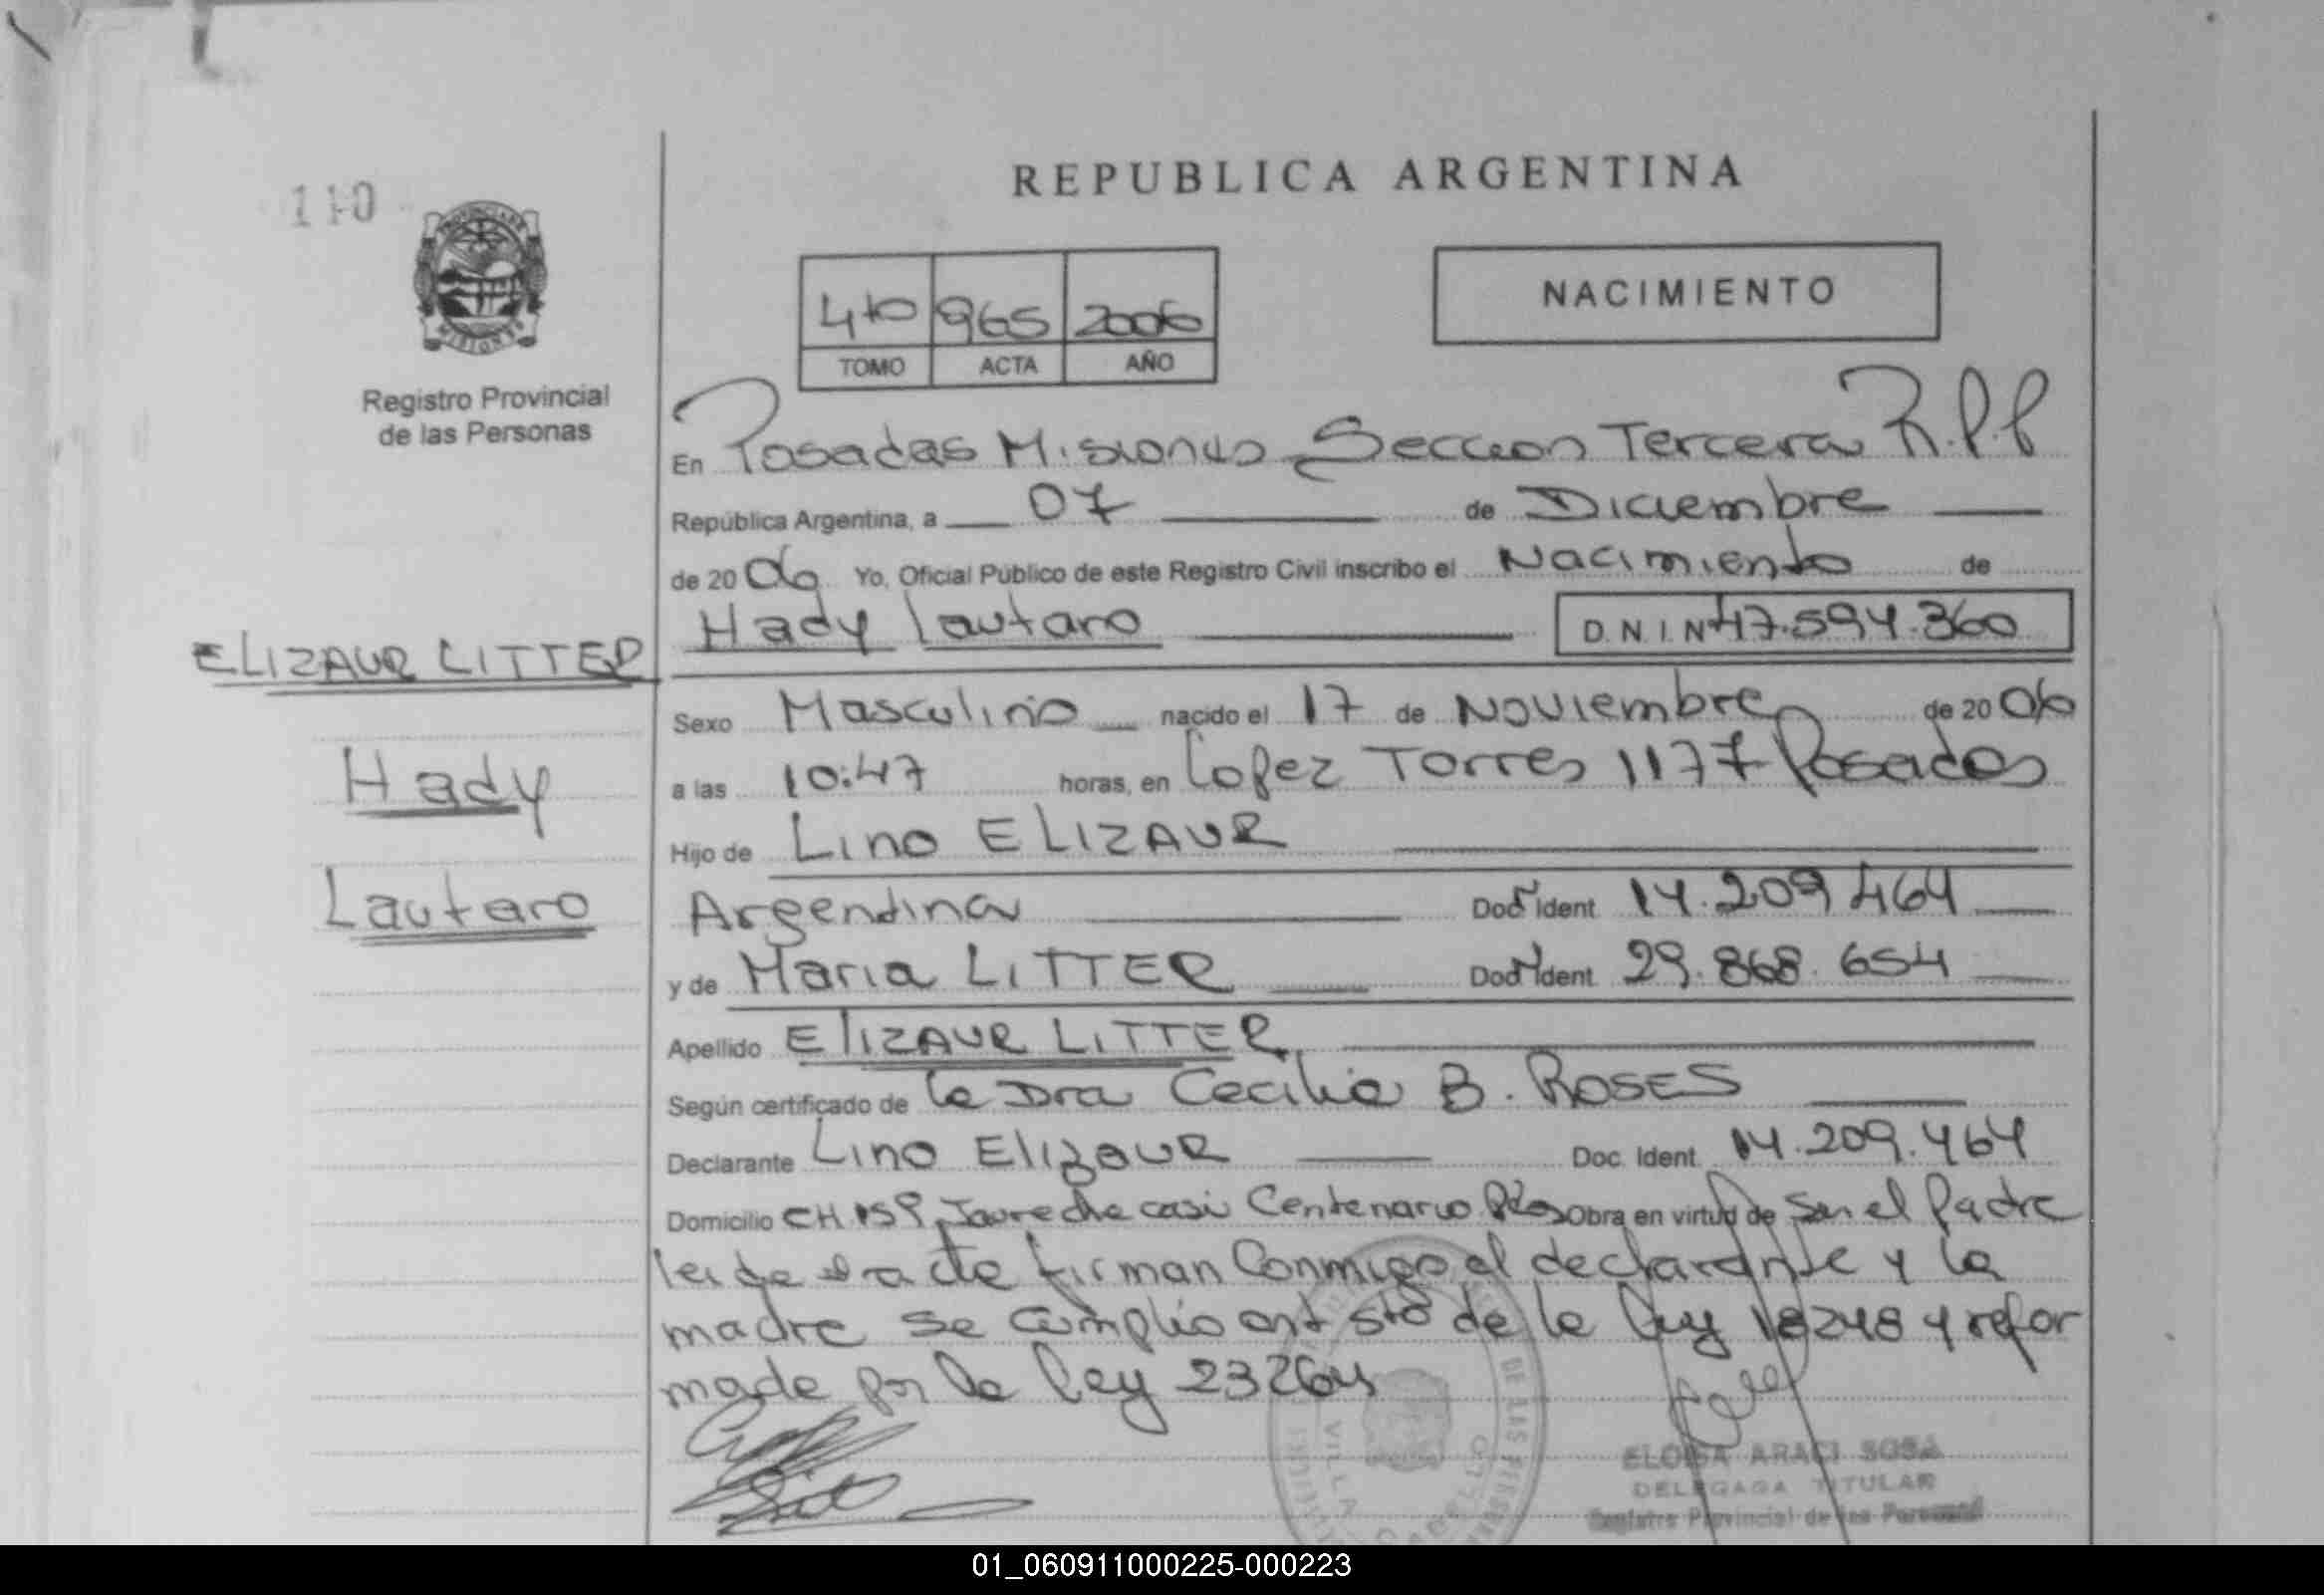 REPUBLICA ARGENTINA
110
PROVINCIA DE
MISIONES
Registro Provincial
de las Personas
410 965 2006
TOMO ACTA AÑO
NACIMIENTO
En Posadas Misiones Seccion Tercera R.P.P
República Argentina, a 07 de Diciembre
de 2006 Yo, Oficial Público de este Registro Civil inscribo el Nacimiento de
Hady Lautaro D.N.I. Nº 47.594.360
ELIZAUR LITTER
Hady
Lautaro
Sexo Masculino nacido el 17 de Noviembre de 2006
a las 10:47 horas, en Lopez Torres 1177 Posadas
Hijo de Lino ELIZAUR
Argentina Doc Ident 14.209.464
y de Maria LITTER Doc Ident. 29.868.654
Apellido ELIZAUR LITTER
Según certificado de la Dra Cecilia B. ROSES
Declarante Lino Elizaur Doc. Ident. 14.209.464
Domicilio CH 159 Jaureche casi Centenario Pdas Obra en virtud de Ser el Padre
leida el acta firman Conmigo el declarante y la
madre se cumplio art 5to de la ley 18248 y refor
mada por la ley 23264
ELOISA ARACI SOSA
DELEGADA TITULAR
Registro Provincial de las Personas
01_060911000225-000223